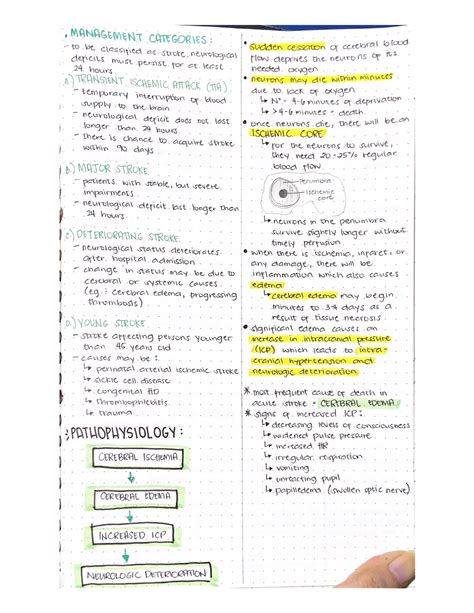 MANAGEMENT CATEGORIES:
- to be classified as stroke, neurological
deficits must persist for at least
24 hours
A) TRANSIENT ISCHEMIC ATTACK (TIA)
- temporary interruption of blood
supply to the brain
- neurological deficit does not last
longer than 24 hours
- there is chance to acquire stroke
within 90 days
B) MAJOR STROKE
- patients with stable, but severe
impairments
- neurological deficit last longer than
24 hours
C) DETERIORATING STROKE
- neurological status deteriorates
after hospital admission
- change in status may be due to
cerebral or systemic causes
(eg.: cerebral edema, progressing
thrombosis)
D.) YOUNG STROKE
- stroke affecting persons younger
than 45 years old
- causes may be:
↳ perinatal arterial ischemic stroke
↳ sickle cell disease
↳ congenital HD
↳ thrombophlebitis
↳ trauma
PATHOPHYSIOLOGY:
CEREBRAL ISCHEMIA
CEREBRAL EDEMA
INCREASED ICP
NEUROLOGIC DETERIORATION
• sudden cessation of cerebral blood
flow deprives the neurons of its
needed oxygen
• neurons may die within minutes
due to lack of oxygen
↳ N° = 4-6 minutes of deprivation
↳ >4-6 minutes - death
• once neurons die, there will be an
ISCHEMIC CORE
↳ for the neurons to survive,
they need 20-25% regular
blood flow
Penumbra
Ischemic
core
↳ neurons in the penumbra
survive slightly longer without
timely perfusion
• when there is ischemia, infarct, or
any damage, there will be
inflammation which also causes
edema
↳ cerebral edema may begin
minutes to 3-4 days as a
result of tissue necrosis
• significant edema causes an
increase in intracranial pressure
(ICP) which leads to intra-
cranial hypertension and
neurologic deterioration
* most frequent cause of death in
acute stroke = CEREBRAL EDEMA
* signs of increased ICP:
↳ decreasing levels of consciousness
↳ widened pulse pressure
↳ increased HR
↳ irregular respiration
↳ vomiting
↳ unreacting pupil
↳ papilledema (swollen optic nerve)